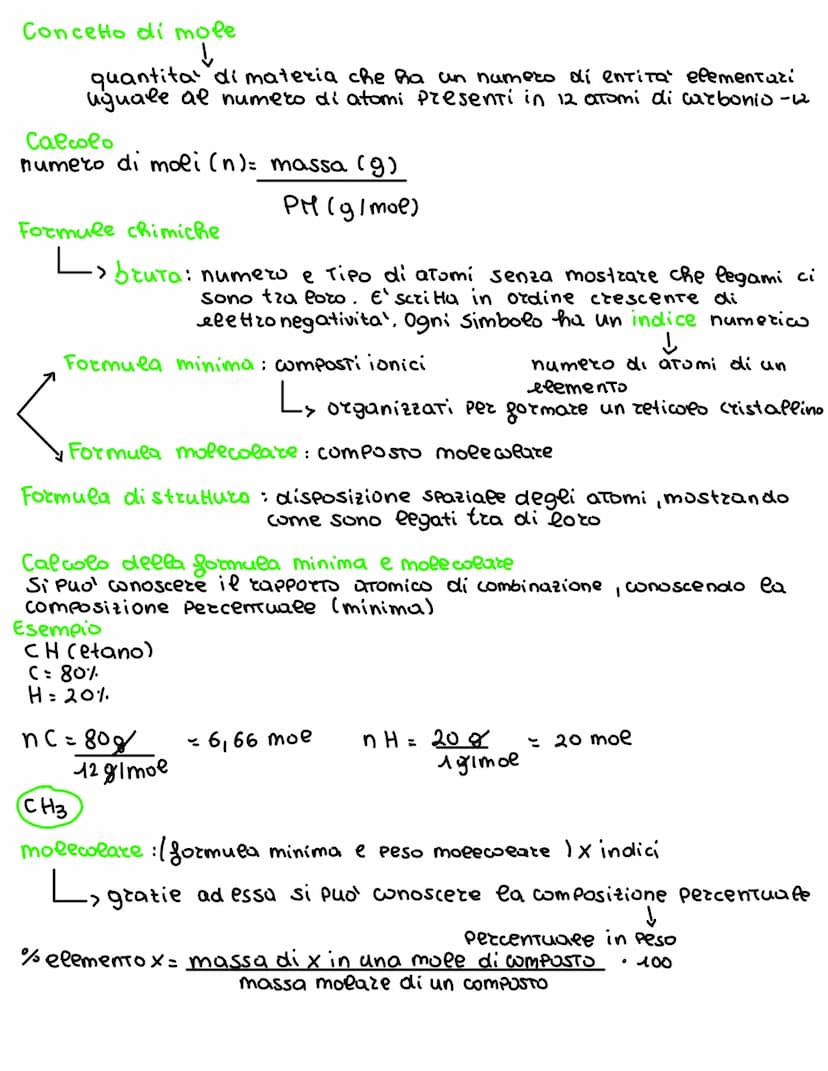 Concetto di mole
quantità di materia che ha un numero di entità elementari
uguale al numero di atomi presenti in 12 atomi di carbonio-12
Calcolo
numero di moli (n) = massa (g)
PM (g/mol)
Formule chimiche
bruta: numero e tipo di atomi senza mostrare che legami ci
sono tra loro. E' scritta in ordine crescente di
elettronegatività. Ogni simbolo ha un indice numerico
Formula minima: composti ionici
numero di atomi di un
elemento
organizzati per formare un reticolo cristallino
Formula molecolare: composto molecolare
Formula di struttura: disposizione spaziale degli atomi, mostrando
come sono legati tra di loro
Calcolo della formula minima e molecolare
Si può conoscere il rapporto atomico di combinazione, conoscendo la
composizione percentuale (minima)
Esempio
CH (etano)
C = 80%
H = 20%
nC = 80g = 6,66 mol nH = 20 g = 20 mol
12 g/mol 1 g/mol
CH3
molecolare: (formula minima e peso molecolare) x indici
gratie ad essa si può conoscere la compositione percentuale
percentuale in peso
% elemento x = massa di x in una mole di composto · 100
massa molare di un composto